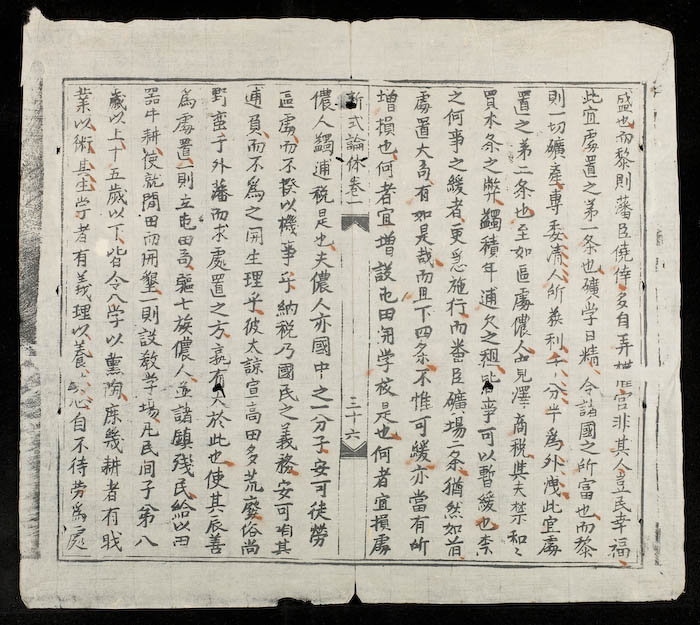 盛也而黎則藩臣僥倖多自弄權官非其人豈民幸福
此宜處置之第一条也礦学日精令諸國之所富也而黎
則一切礦產專委清人所获利千八分半為外洩此宜處
置之第二条也至如區處儂人如見澤商税與夫禁和
買木条之弊蠲積年逋欠之租此事可以暫緩也李
之何事之緩者更急施行而番臣礦場二条猶然如前
處置大局有如是哉而且下四条不惟可緩亦當有所
增損也何者宜增設屯田開学校是也何者宜損處
新式論体卷一
三十六
儂人蠲逋税是也夫儂人亦國中之一分子安可徒勞
區處而不揆以機事乎納税乃國民之義務安可啇其
逋負而不為之開生理乎彼太諒宣高田多荒廢俗尚
野蛮于外藩而求處置之方孰有於此也使其辰善
為處置一則立屯田局驅七族儂人並諸鎮殘民給以田
器牛耕使就閒田而開墾一則設教学場凡民間子弟八
歲以上十五歲以下皆令入学以熏陶庶幾耕者有戝
業以術其生学者有義理以養心自不待劳為處